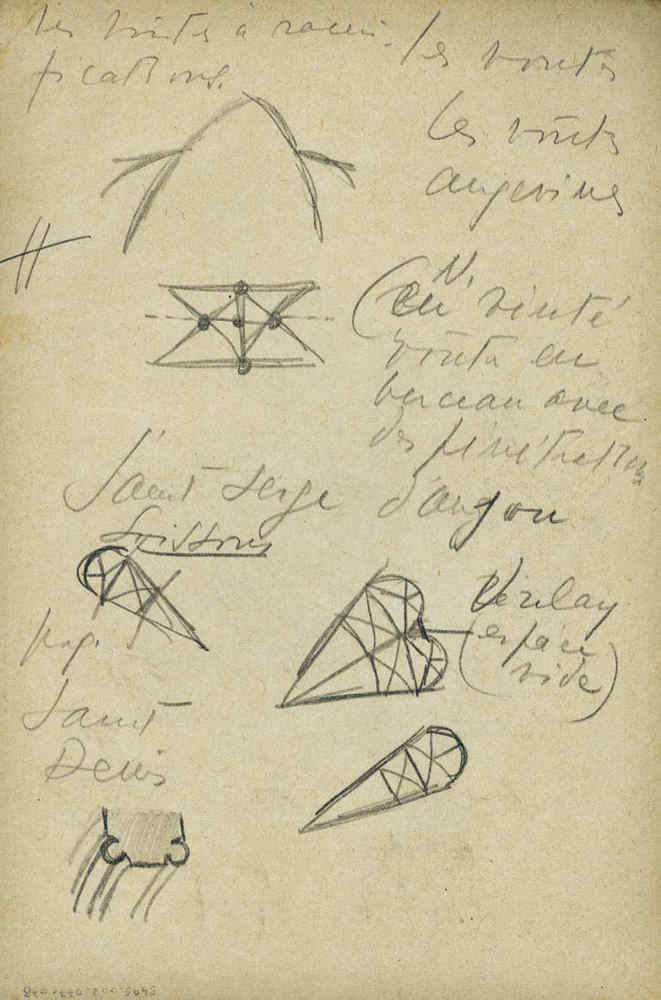 Les voûtes à rami-
fications.
les voutes
Les voûtes
angevines
(en vérité
voute en
berceau avec
des pénétrations
Saint Serge d'anjou
Soissons
Vézelay
(espace
vide)
Saint
Denis